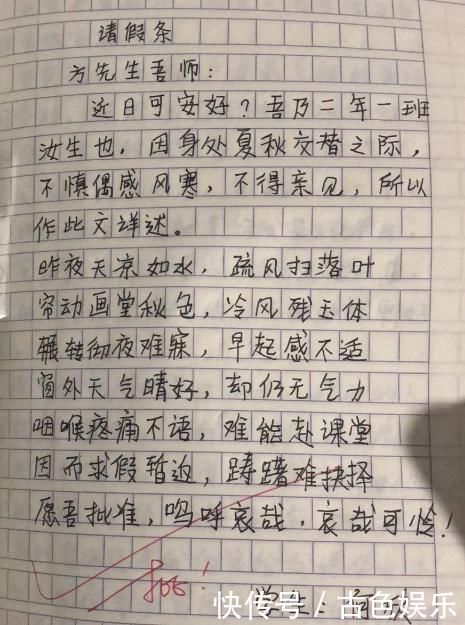 请假条
方先生吾师：
近日可安好？吾乃二年一班
汝生也，因身处夏秋交替之际，
不慎偶感风寒，不得亲见，所以
作此文详述。
昨夜天凉如水，疏风扫落叶
帘动画堂秋色，冷风残玉体
辗转彻夜难寐，早起感不适
窗外天气晴好，却仍无气力
咽喉疼痛不语，难能赴课堂
因而求假暂返，踌躇难抉择
愿吾批准，呜呼哀哉，哀哉可怜！
批！
学生：
快传号／古色娱乐